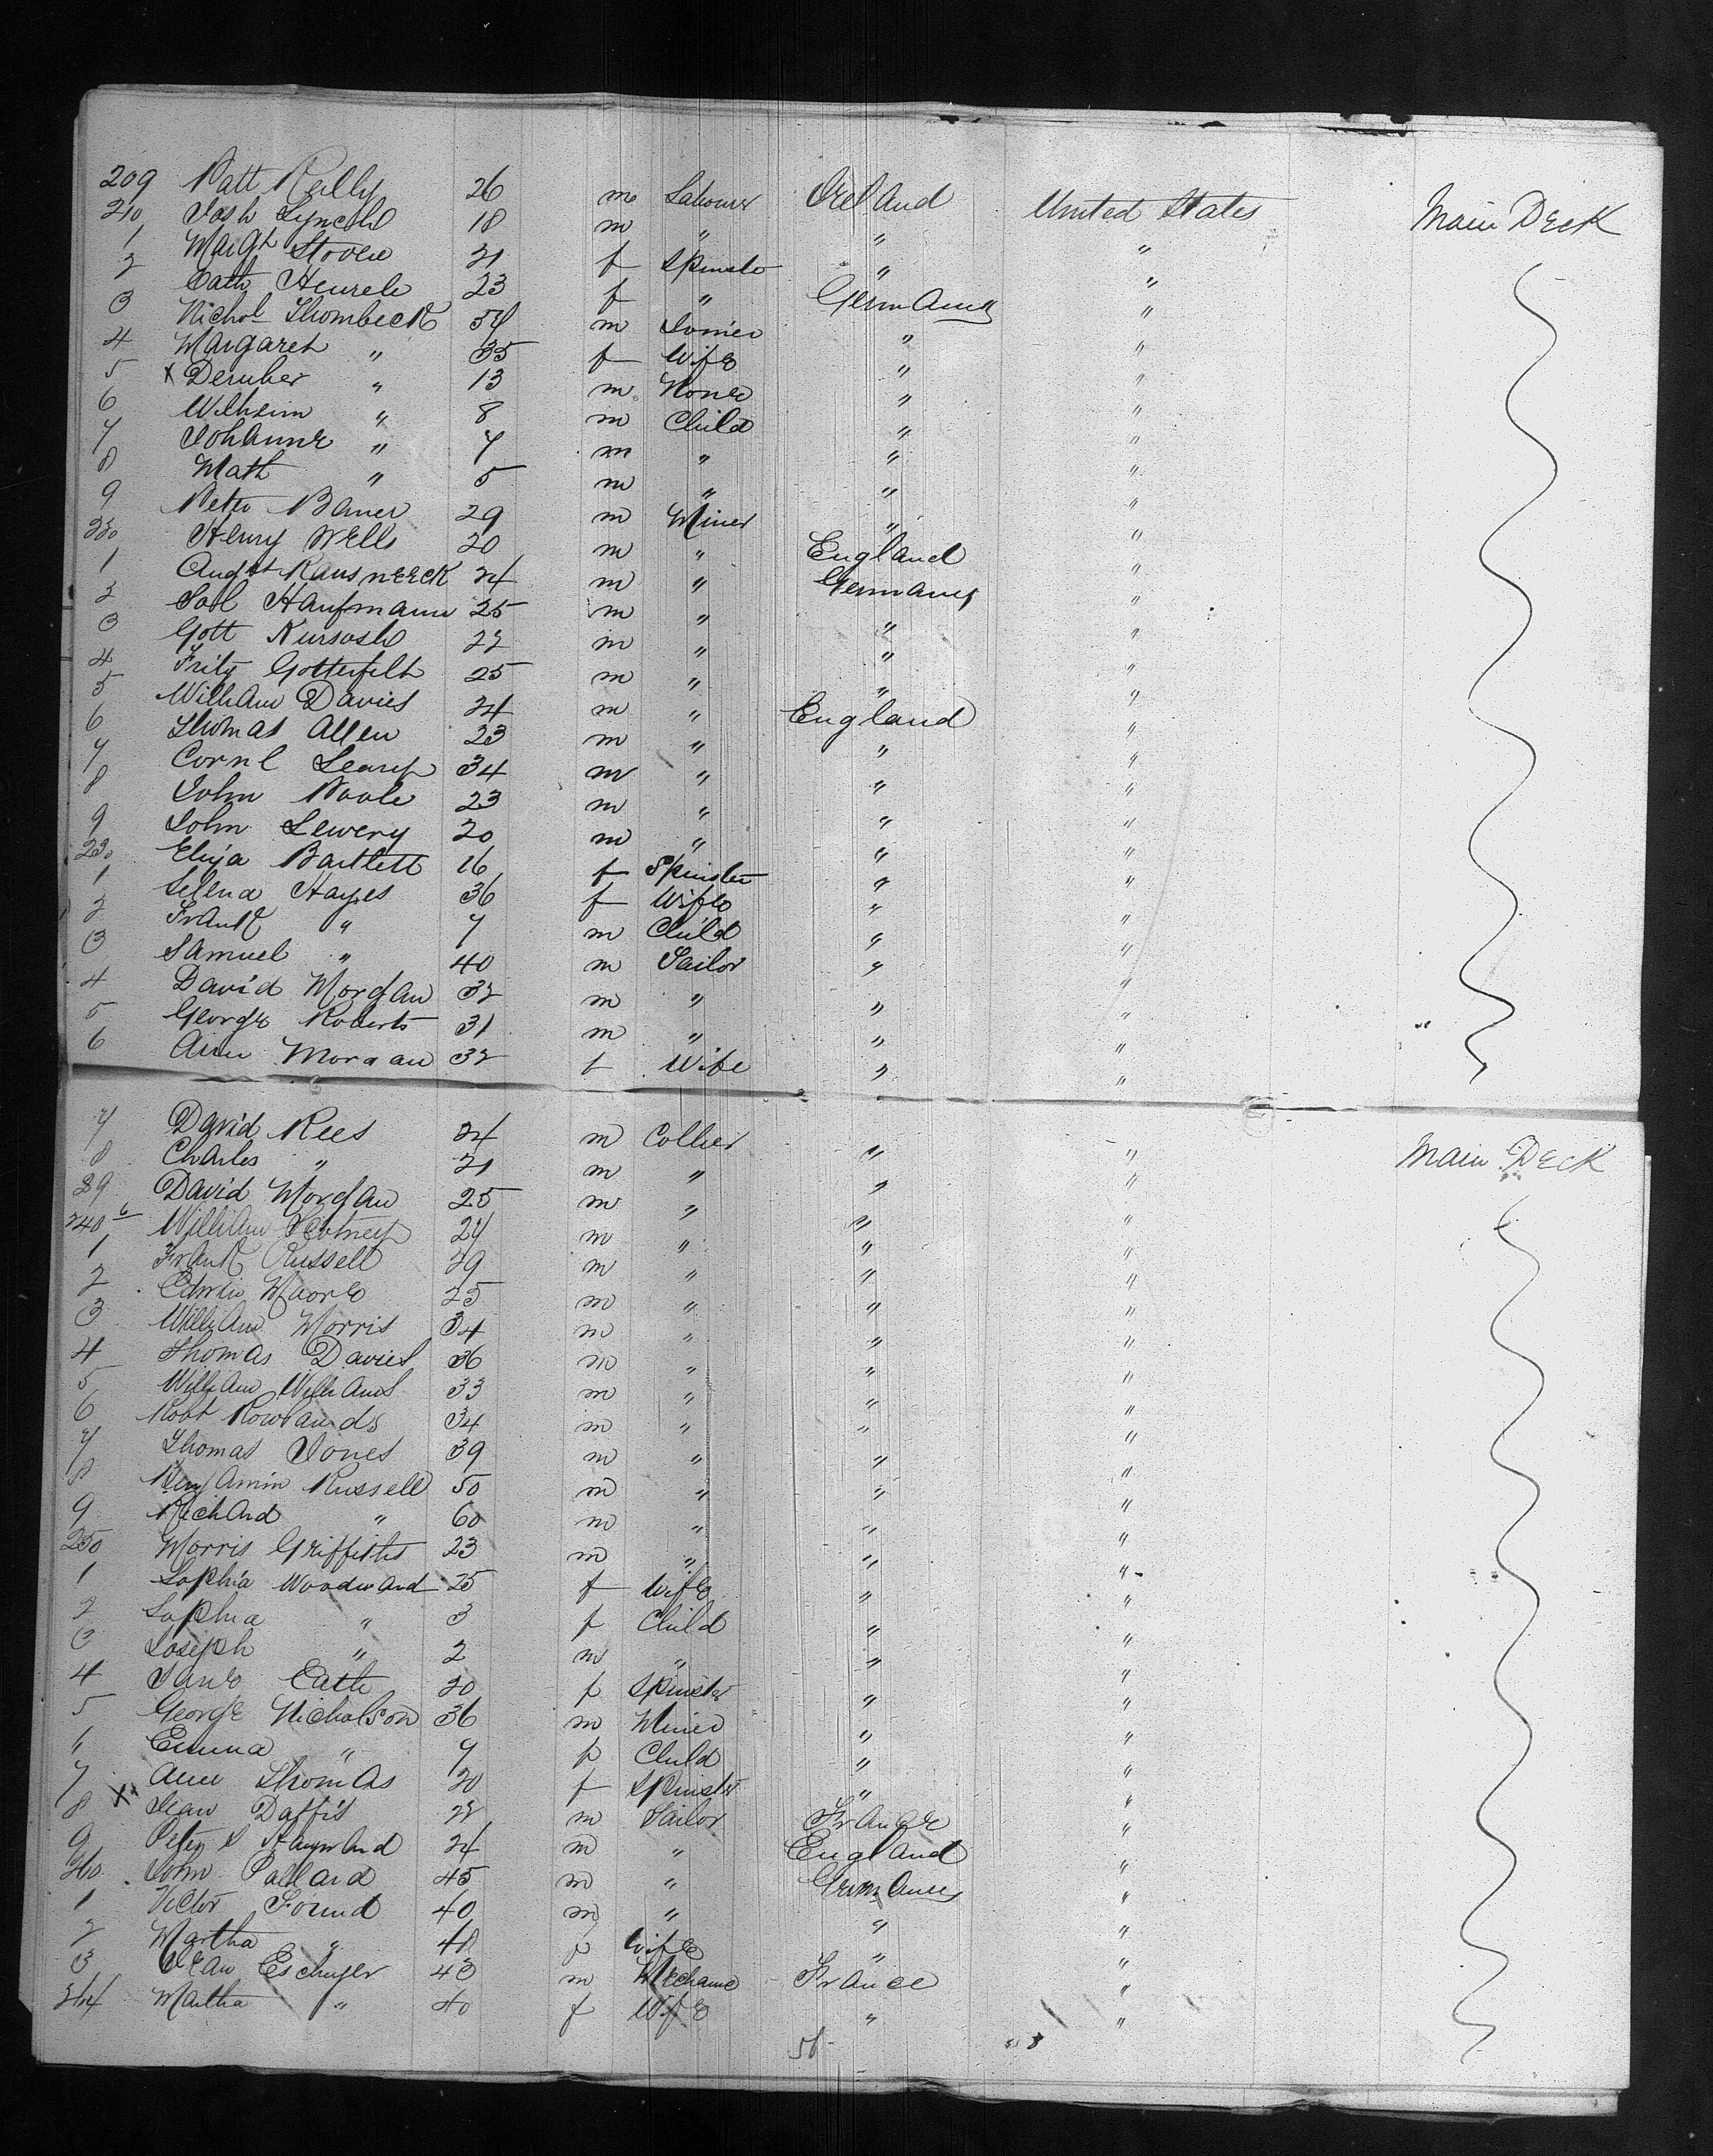 209 Patt Reilly 26 m Labourer Ireland United States Main Deck
210 Josh Lynch 18 m " " "
1 Margt 21 f Spinster " "
2 Cath 23 f " Germany "
3 Nichol Thombeck 54 m " "
4 Margaret " 35 f Wife " "
5 X " 13 m None " "
6 Wilheim " 8 m Child " "
7 Johanne " 7 m " " "
8 Math " 5 m " " "
9 Peter Bauer 29 m Miner " "
220 Henry Wells 20 m " England "
1 Augst 24 m " Germany "
2 Haufmann 25 m " " "
3 Gott 22 m " " "
4 Fritz Gotterfelt 25 m " " "
5 William Davies 24 m " England "
6 Thomas Allen 23 m " " "
7 Cornl Leary 34 m " " "
8 John Poole 23 m " " "
9 John Lewery 20 m " " "
230 Eliza Bartlett 16 f Spinster " "
1 Selena Hayes 36 f Wife " "
2 Frank " 7 m Child " "
3 Samuel " 40 m Sailor " "
4 David Morgan 32 m " " "
5 George Roberts 31 m " " "
6 Ann Morgan 32 f Wife " "
7 David Rees 24 m Collier " " Main Deck
8 Charles " 21 m " " "
39 David Morgan 25 m " " "
240 William 24 m " " "
1 Frank Russell 29 m " " "
2 Edwin Moore 25 m " " "
3 William Morris 34 m " " "
4 Thomas Davies 36 m " " "
5 William Williams 33 m " " "
6 Robt Rowlands 34 m " " "
7 Thomas Jones 39 m " " "
8 Benjamin Russell 50 m " " "
9 Richard " 60 m " " "
250 Morris Griffiths 23 m " " "
1 Sophia Woodward 25 f Wife " "
2 Sophia " 3 f Child " "
3 Joseph " 2 m " " "
4 Jane Cath 20 f Spinster " "
5 George Nicholson 36 m Miner " "
" Emma " 9 f Child " "
7 Ann Thomas 20 f Spinster " "
8 X Jean Daffis 22 m Sailor France "
9 24 m " England "
260 John Pallard 45 m " Germany "
1 Victor Found 40 m " " "
2 Martha " 48 f Wife " "
3 Jean 43 m Mechanic France "
264 Martha " 40 f Wife " "